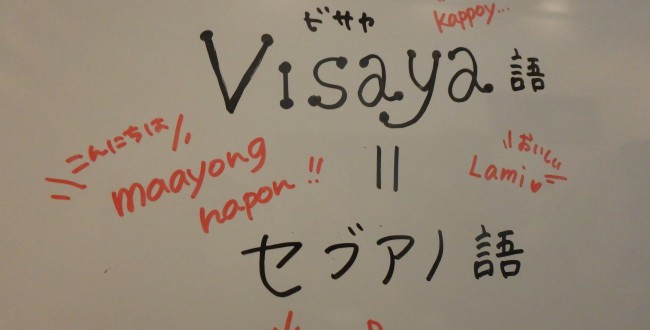 kappoy...
ビサヤ
Visaya語
こんにちは
maayong
hapon!!
=
おいしい
Lami♥
セブアノ語